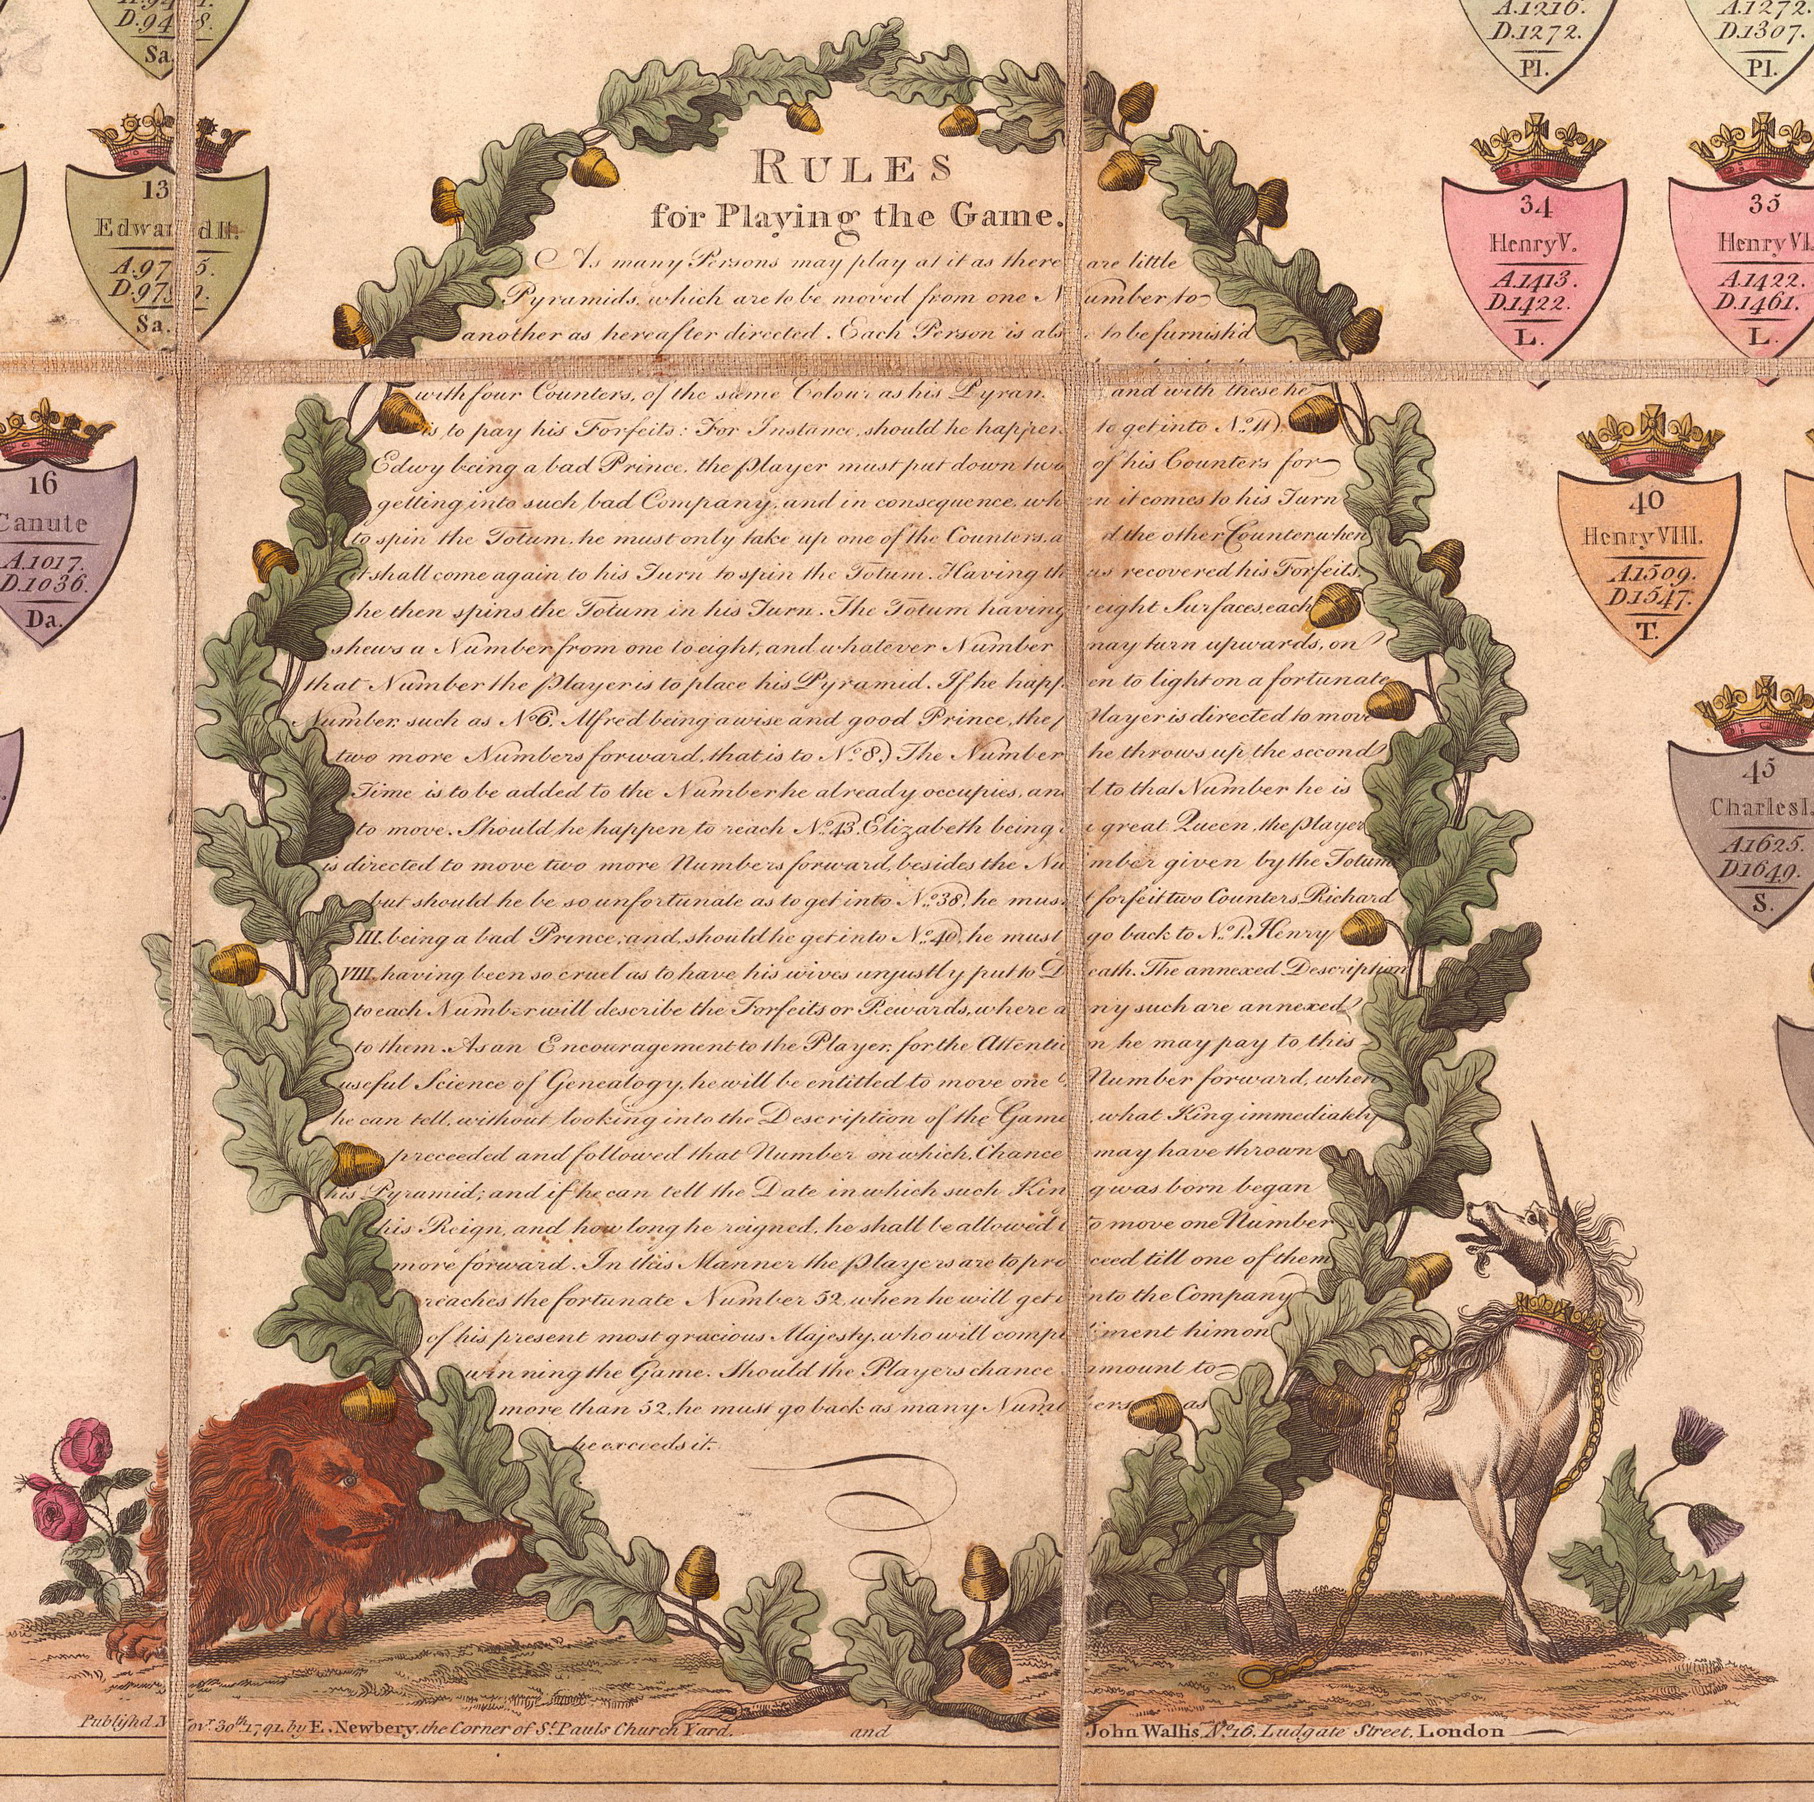 D.94
Sa.
A.1216.
D.1272.
Pl.
A.1272.
D.1307.
Pl.
13
Edward II.
A.975.
D.979.
Sa.
34
Henry V.
A.1413.
D.1422.
L.
35
Henry VI.
A.1422.
D.1461.
L.
16
Canute
A.1017.
D.1036.
Da.
40
Henry VIII.
A.1509.
D.1547.
T.
45
Charles I.
A.1625.
D.1649.
S.
RULES
for Playing the Game.
As many Persons may play at it as there are little
Pyramids, which are to be moved from one Number to
another as hereafter directed. Each Person is also to be furnish'd
with four Counters, of the same Colour as his Pyram. and with these he
is to pay his Forfeits: For Instance, should he happen to get into No. 11)
Edwy being a bad Prince, the player must put down two of his Counters for
getting into such bad Company, and in consequence, when it comes to his Turn
to spin the Totum, he must only take up one of the Counters, and the other Counter when
it shall come again to his Turn to spin the Totum. Having thus recovered his Forfeits,
he then spins the Totum in his Turn. The Totum having eight Surfaces, each
shews a Number from one to eight, and whatever Number may turn upwards, on
that Number the player is to place his Pyramid. If he happen to light on a fortunate
Number, such as No. 6. Alfred being a wise and good Prince, the player is directed to move
two more Numbers forward, that is to No. 8.) The Number he throws up the second
Time is to be added to the Number he already occupies, and to that Number he is
to move. Should he happen to reach No. 43. Elizabeth being a great Queen, the player
is directed to move two more Numbers forward, besides the Number given by the Totum
but should he be so unfortunate as to get into No. 38, he must forfeit two Counters, Richard
III. being a bad Prince; and, should he get into No. 40, he must go back to No. 1. Henry
VIII. having been so cruel as to have his wives unjustly put to Death. The annexed Description
to each Number will describe the Forfeits or Rewards, where any such are annexed
to them. As an Encouragement to the Player, for the Attention he may pay to this
useful Science of Genealogy, he will be entitled to move one Number forward, when
he can tell, without looking into the Description of the Game, what King immediately
preceeded and followed that Number on which Chance may have thrown
his Pyramid; and if he can tell the Date in which such King was born began
his Reign, and how long he reigned, he shall be allowed to move one Number
more forward. In this Manner the players are to proceed till one of them
reaches the fortunate Number 52, when he will get into the Company
of his present most gracious Majesty, who will compliment him on
winning the Game. Should the Players chance amount to
more than 52, he must go back as many Numbers as
he exceeds it.
Publish'd Nov.r 30th 1791. by E. Newbery, the Corner of St. Pauls Church Yard. and John Wallis, No. 16, Ludgate Street, London